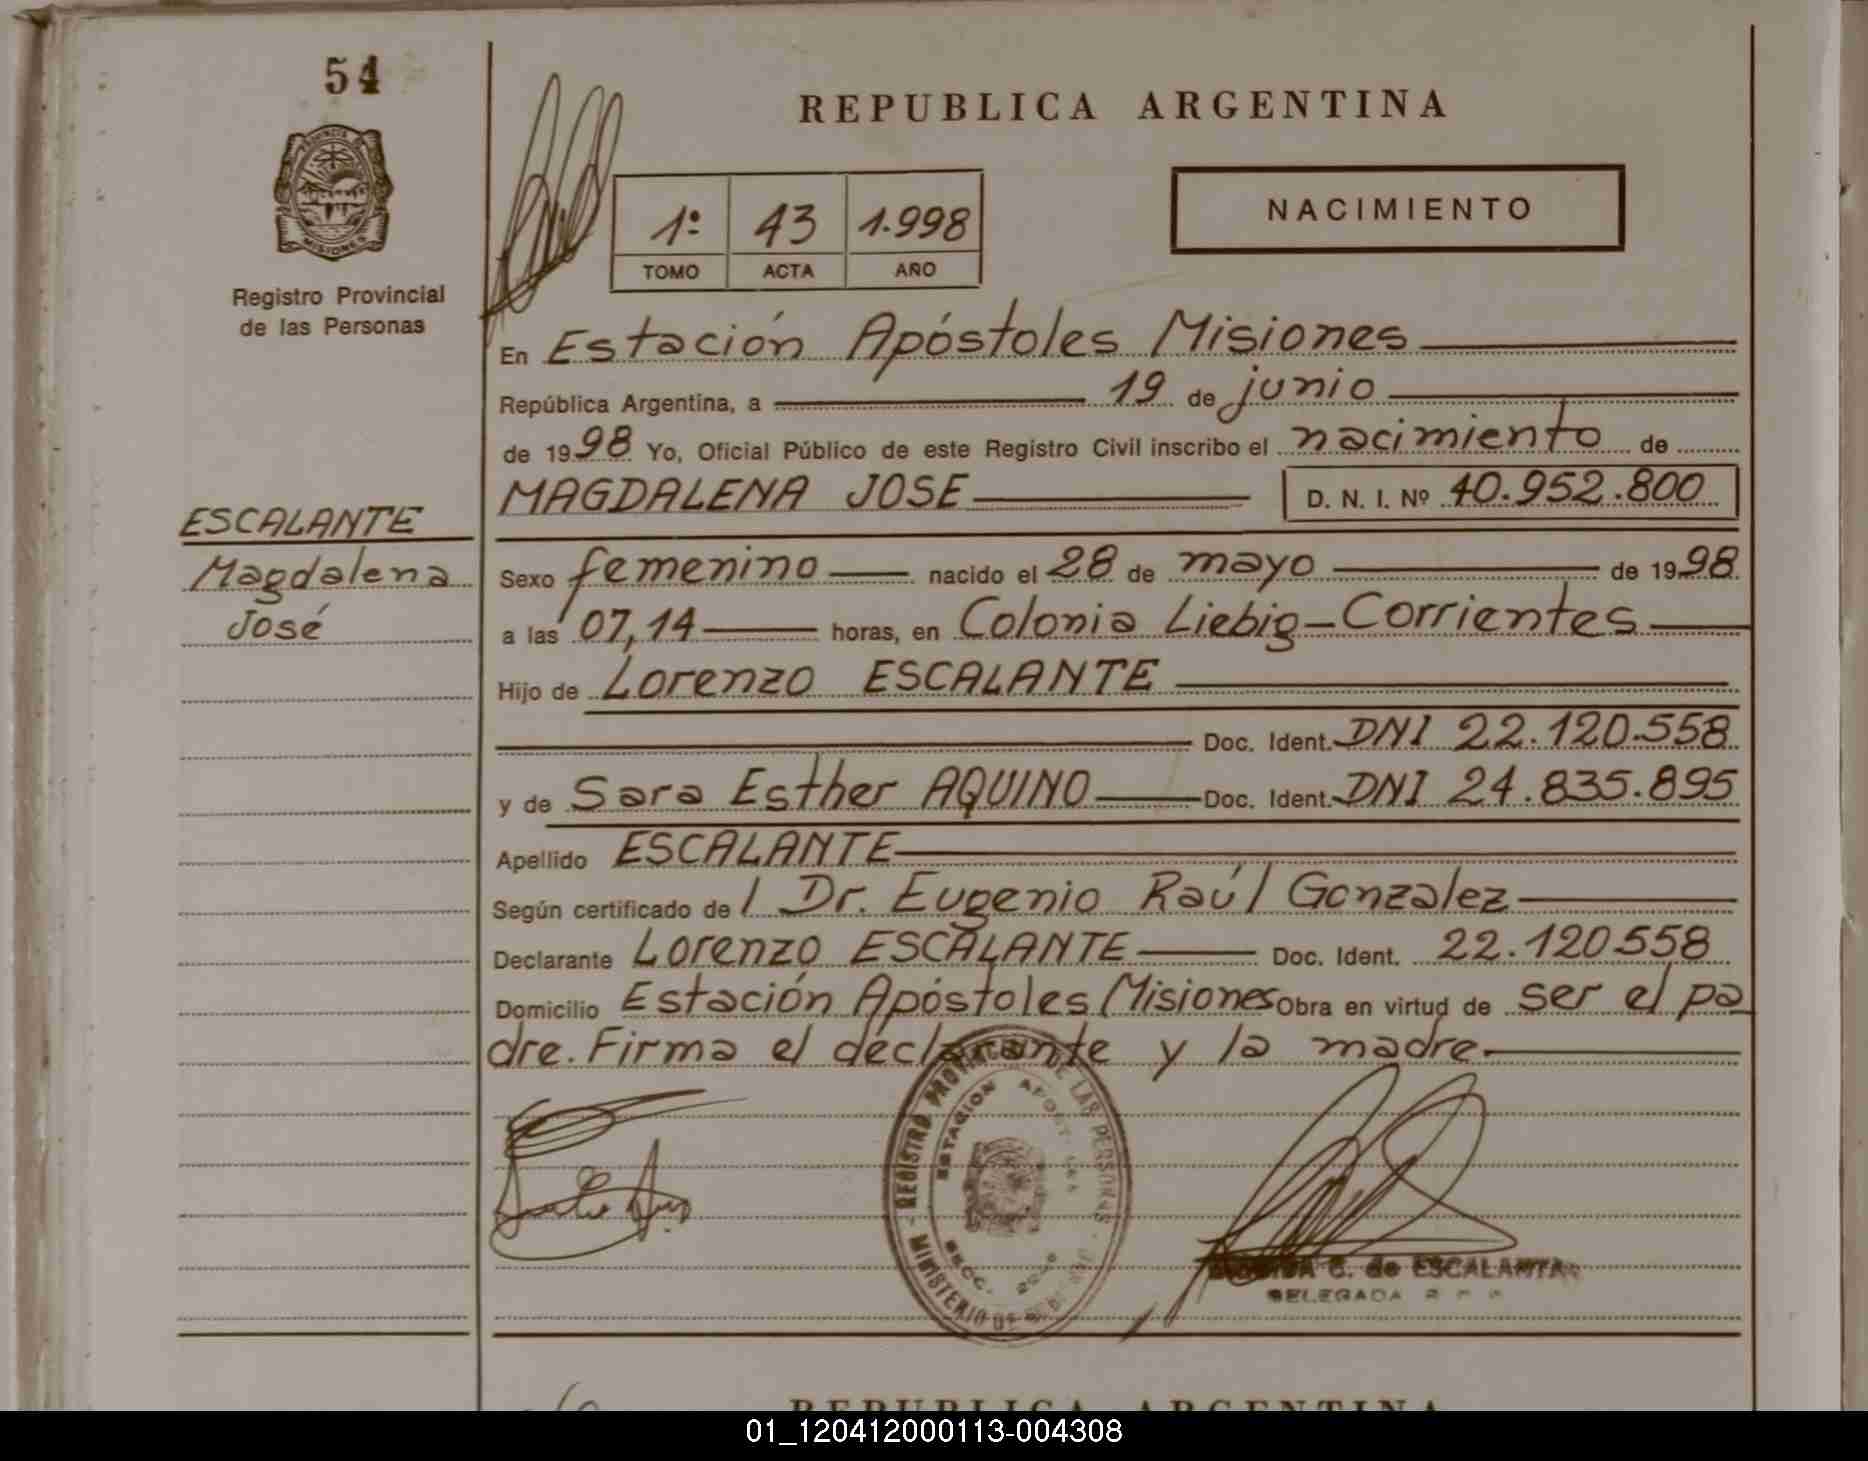 54
PROVINCIA DE
MISIONES
Registro Provincial
de las Personas
REPUBLICA ARGENTINA
1º 43 1.998
TOMO ACTA AÑO
NACIMIENTO
En Estación Apóstoles Misiones
República Argentina, a 19 de junio
de 1998 Yo, Oficial Público de este Registro Civil inscribo el nacimiento de
MAGDALENA JOSE D. N. I. Nº 40.952.800
ESCALANTE
Magdalena
José
Sexo femenino nacido el 28 de mayo de 1998
a las 07,14 horas, en Colonia Liebig-Corrientes
Hijo de Lorenzo ESCALANTE
Doc. Ident. DNI 22.120.558
y de Sara Esther AQUINO Doc. Ident. DNI 24.835.895
Apellido ESCALANTE
Según certificado de l Dr. Eugenio Raúl Gonzalez
Declarante Lorenzo ESCALANTE Doc. Ident. 22.120558
Domicilio Estación Apóstoles Misiones Obra en virtud de ser el pa
dre. Firma el declarante y la madre
REGISTRO PROVINCIAL DE LAS PERSONAS
MINISTERIO DE
ESTACION APOSTOLES
SECC.
C. de ESCALANTE
DELEGADA
REPUBLICA ARGENTINA
01_120412000113-004308